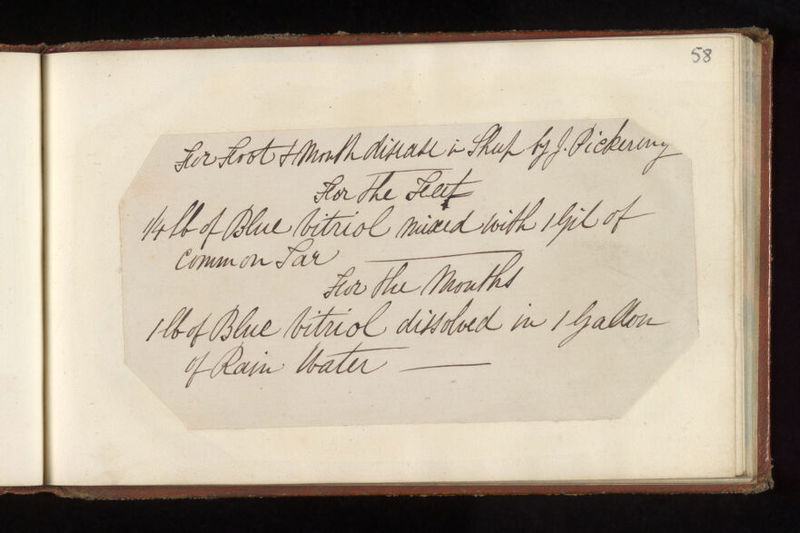 58
For Foot & Mouth disease in Sheep by J. Pickering
For the Feet
1/4 lb of Blue Vitriol mixed with 1 Gil of
Common Tar
For the Mouths
1 lb of Blue Vitriol dissolved in 1 Gallon
of Rain Water